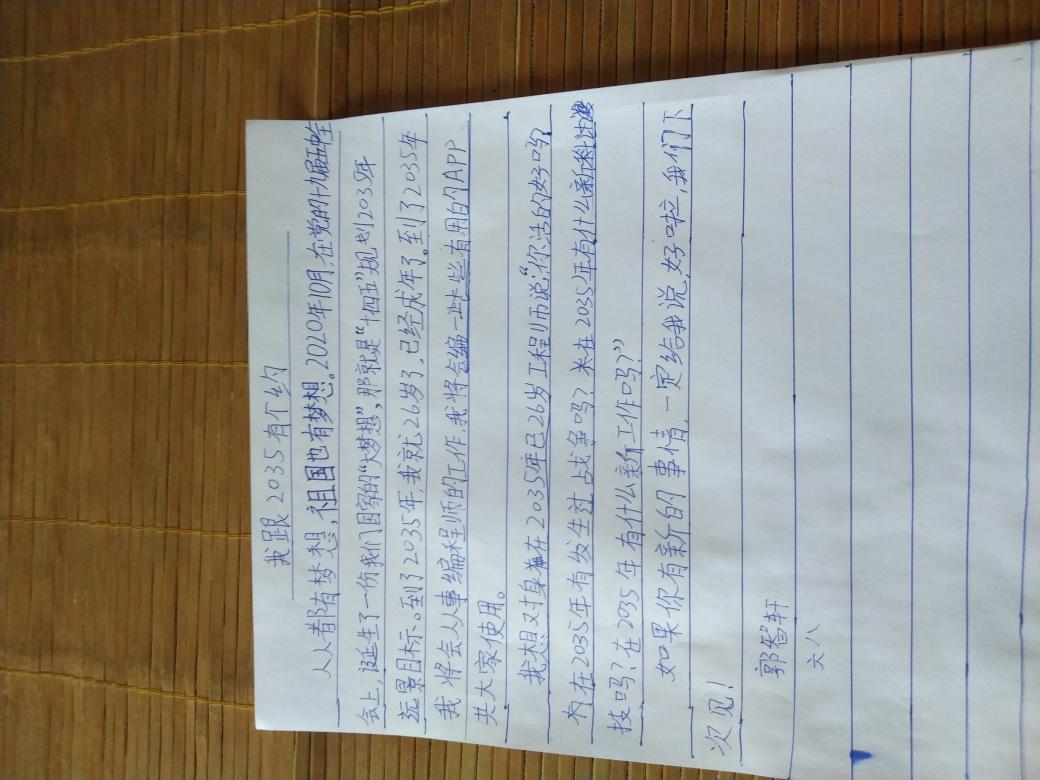 我跟2035有个约
人人都有梦想,祖国也有梦想。2020年10月,在党的十九届五中全
会上,诞生了一份我们国家的“大梦想”,那就是“十四五”规划2035年
远景目标。到了2035年,我就26岁了,已经成年了。到了2035年
我将会从事编程师的工作,我将会编一些有用的APP、
共大家使用。
我想对身在2035年已26岁工程师说:“你活的好吗?
在2035年有发生过战争吗?在2035年有什么新科
技吗?在2035年有什么新工作吗?”
如果你有新的事情,一定给我说,好啦,我们下
次见!
郭智轩
六八